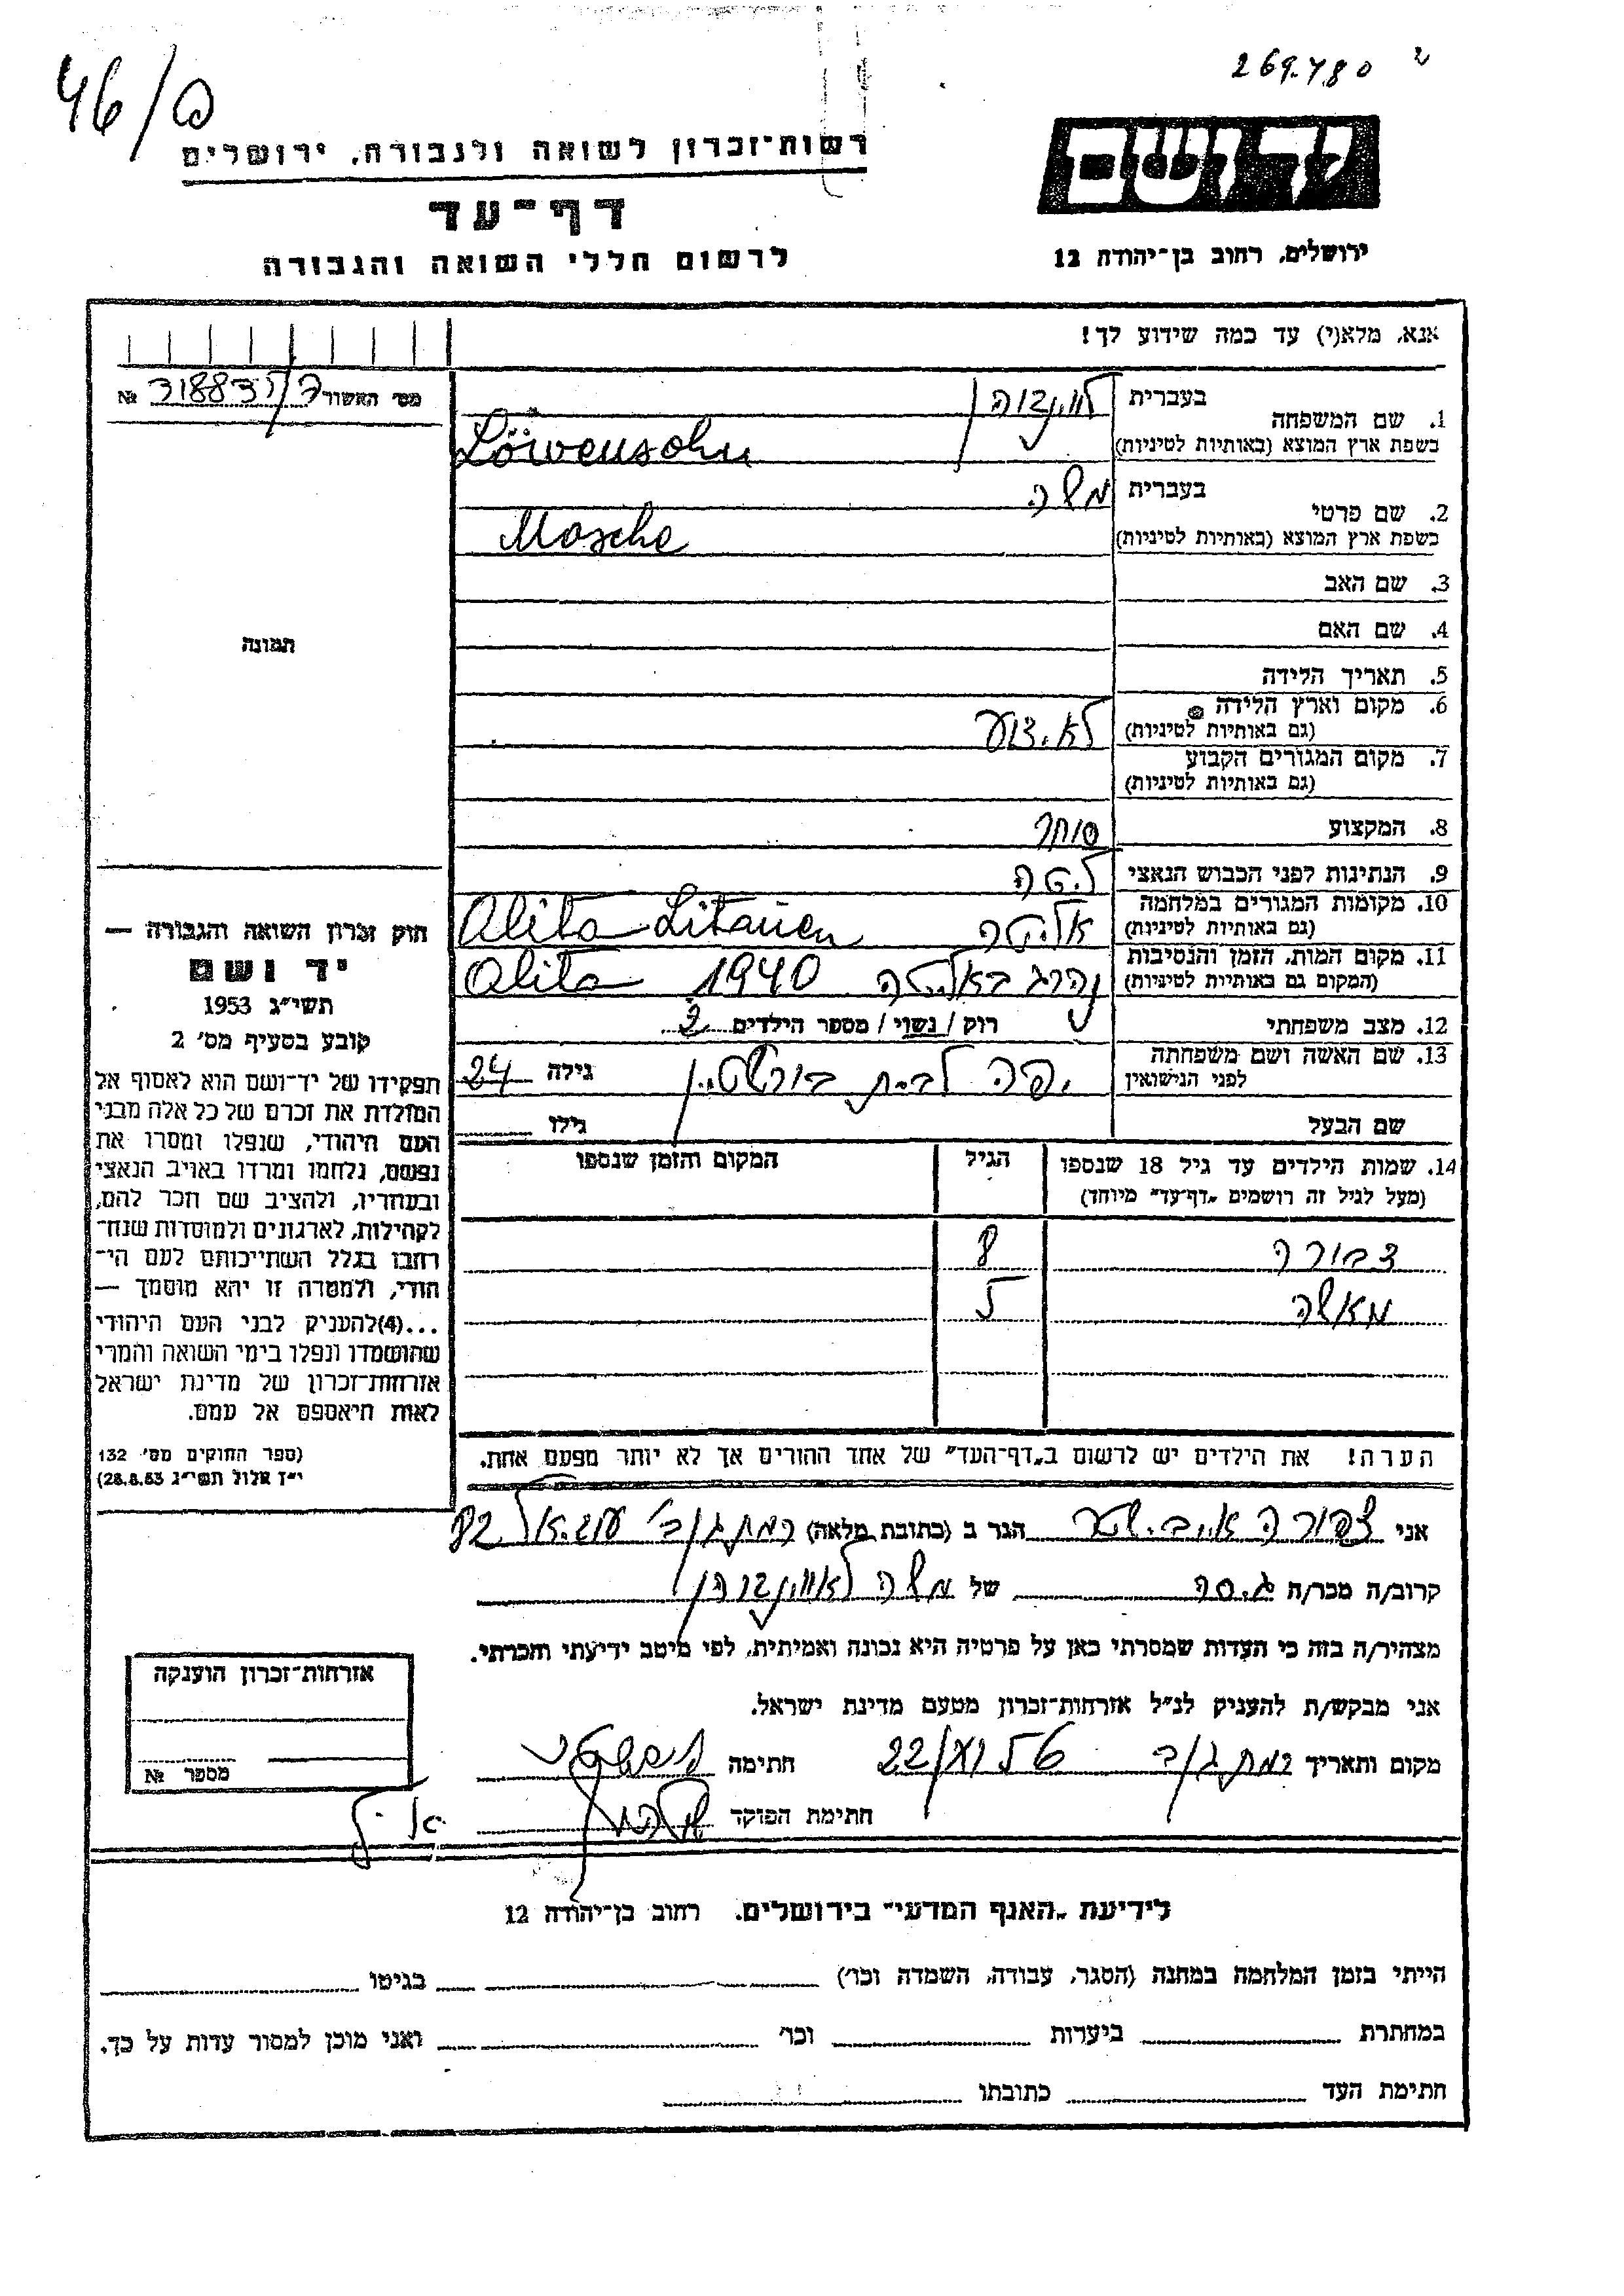 46/ס
269.480
רשות־זכרון לשואה ולגבורה, ירושלים
דף־עד
לרשום חללי השואה והגבורה
יד ושם
ירושלים, רחוב בן־יהודה 12
אנא, מלא(י) עד כמה שידוע לך!
מס׳ האשור № 318837/ד
1. שם המשפחה
בעברית
בשפת ארץ המוצא (באותיות לטיניות) Löwensohn
2. שם פרטי
בעברית משה
בשפת ארץ המוצא (באותיות לטיניות) Mosche
3. שם האב
4. שם האם
תמונה
5. תאריך הלידה
6. מקום וארץ הלידה
(גם באותיות לטיניות) לא ידוע
7. מקום המגורים הקבוע
(גם באותיות לטיניות)
8. המקצוע סוחר
9. הנתינות לפני הכבוש הנאצי ליטה
10. מקומות המגורים במלחמה
(גם באותיות לטיניות) אליטה Alita Litauen
11. מקום המות, הזמן והנסיבות
(המקום גם באותיות לטיניות) נהרג באליטה 1940 Alita
12. מצב משפחתי רוק / נשוי / מספר הילדים 2
13. שם האשה ושם משפחתה
לפני הנישואין יפה לבית בורשטין גילה 24
שם הבעל גילו
14. שמות הילדים עד גיל 18 שנספו
(מעל לגיל זה רושמים „דף־עד״ מיוחד)
הגיל
המקום והזמן שנספו
דבורה 8
מאשה 5
הערה! את הילדים יש לרשום ב„דף־העד״ של אחד ההורים אך לא יותר מפעם אחת.
חוק זכרון השואה והגבורה —
יד ושם
תשי״ג 1953
קובע בסעיף מס׳ 2
תפקידו של יד־ושם הוא לאסוף אל
המולדת את זכרם של כל אלה מבני
העם היהודי, שנפלו ומסרו את
נפשם, נלחמו ומרדו באויב הנאצי
ובעוזריו, ולהציב שם וזכר להם,
לקהילות, לארגונים ולמוסדות שנח־
רבו בגלל השתייכותם לעם הי־
הודי, ולמטרה זו יהא מוסמך —
...(4) להעניק לבני העם היהודי
שהושמדו ונפלו בימי השואה והמרי
אזרחות־זכרון של מדינת ישראל
לאות היאספם אל עמם.
(ספר החוקים מס׳ 132
י״ז אלול תשי״ג 28.8.53)
אני צפורה הגר ב (כתובת מלאה) רמת גן 82
קרוב/ה מכר/ה גיסה של משה לאווינזוהן
מצהיר/ה בזה כי העדות שמסרתי כאן על פרטיה היא נכונה ואמיתית, לפי מיטב ידיעתי והכרתי.
אני מבקש/ת להעניק לנ״ל אזרחות־זכרון מטעם מדינת ישראל.
מקום ותאריך רמת גן חתימה
חתימת הפוקד
אזרחות־זכרון הוענקה
מספר №
לידיעת „האגף המדעי״ בירושלים. רחוב בן־יהודה 12
הייתי בזמן המלחמה במחנה (הסגר, עבודה, השמדה וכו׳) בגיטו
במחתרת ביערות וכו׳ ואני מוכן למסור עדות על כך.
חתימת העד כתובתו